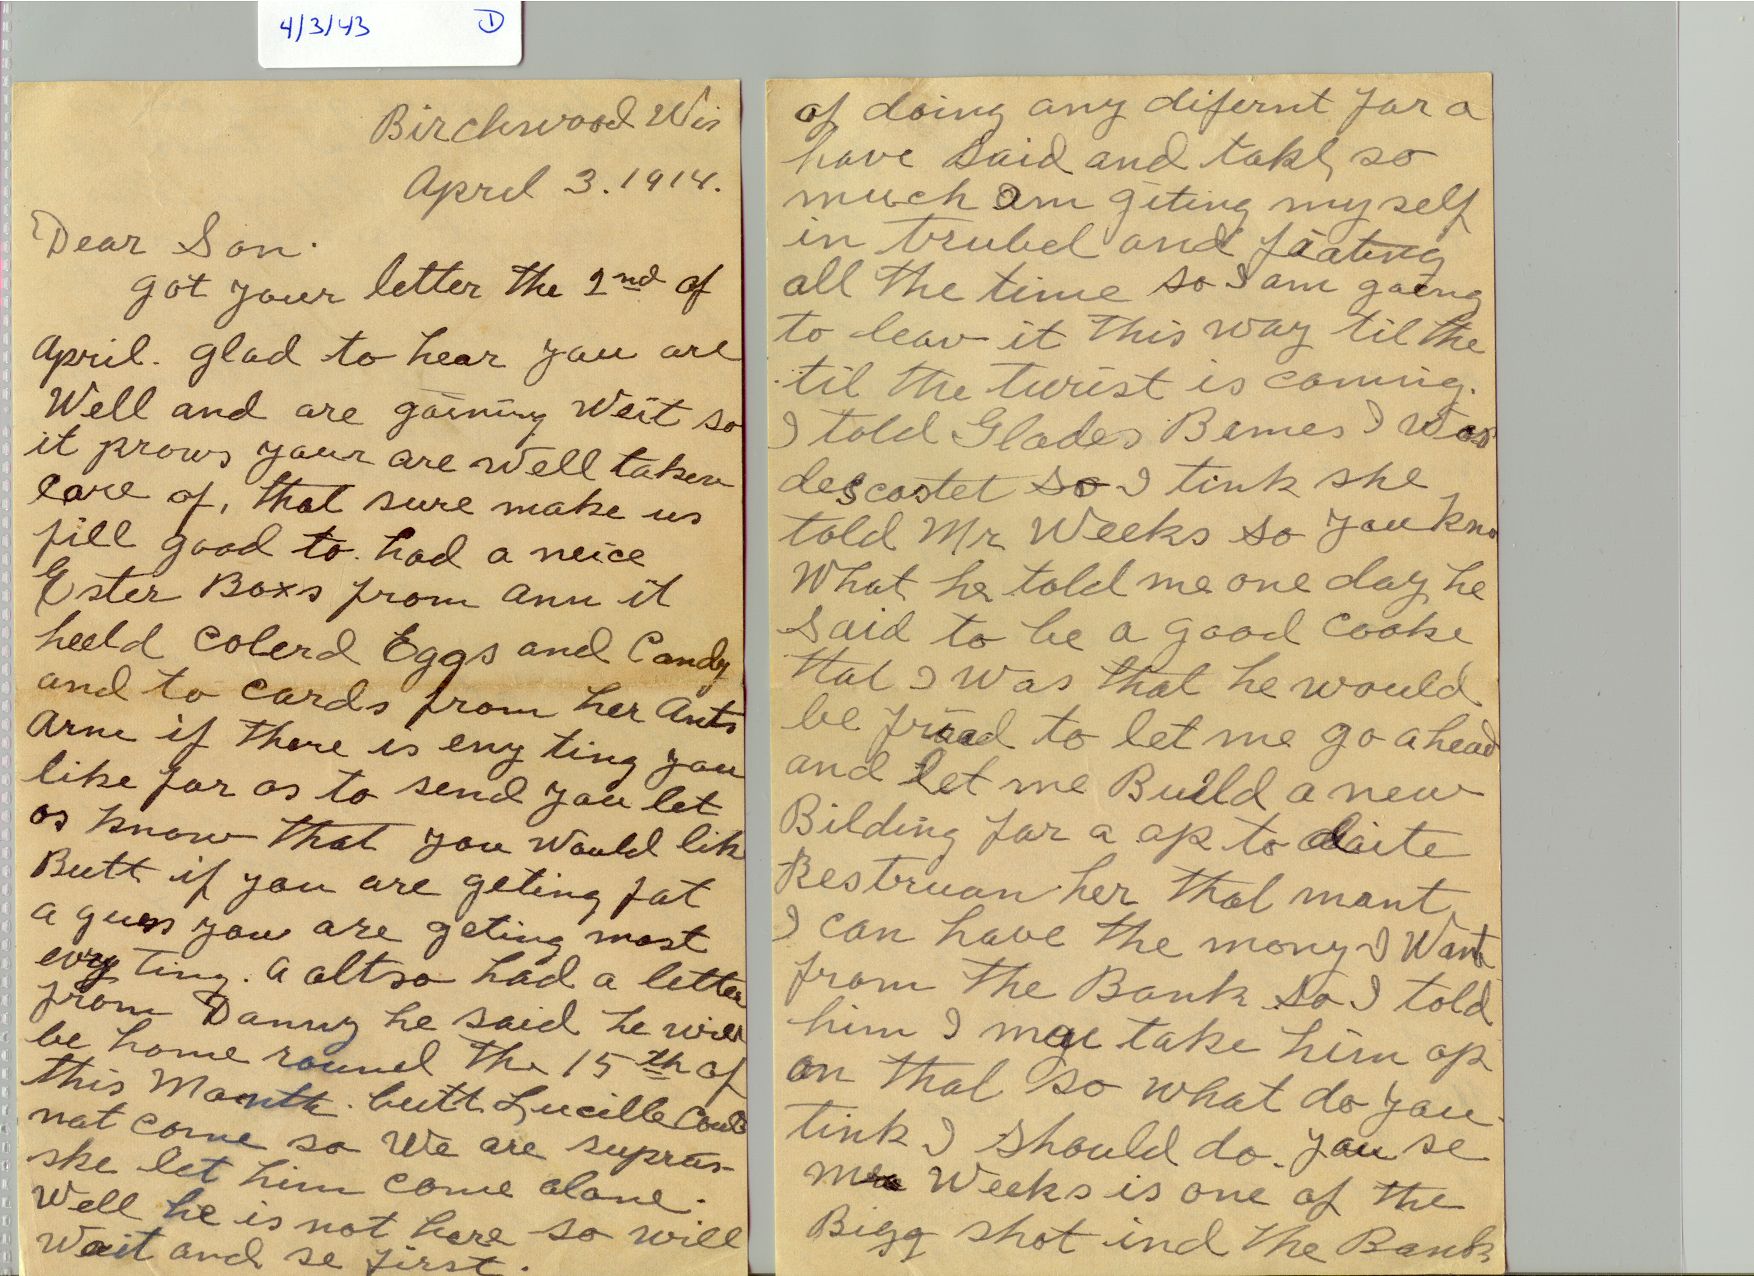 4/3/43 D
Birchwood Wis
April 3. 1914.
Dear Son.
got your letter the 2nd of
April. glad to hear you are
Well and are gaining Weit so
it prows your are well taken
care of, that sure make us
fill good to. had a neice
Ester Boxs from ann it
heeld colerd Eggs and Candy
and to cards from her Ants
Arne if there is eny ting you
like for os to send you let
os know that you would like
Butt if you are geting fat
a guess you are geting most
evry ting. a altso had a letter
from Danny he said he will
be home round the 15th of
this Month. butt Lucille could
not come so We are supras
she let him come alone.
Well he is not here so will
Wait and se first.
of doing any difernt for a
have said and takl so
much am giting my self
in trubel and
all the time so I am going
to leav it this way til the
til the turist is coming.
I told Glades Bemes I was
descostet so I tink she
told Mr Weeks so you kno
What he told me one day, he
said to be a good cooke
that I was that he would
be to let me go ahead
and let me Build a new
Bilding for a op to daite
Restruan her that mant
I can have the mony I Want
from the Bank so I told
him I may take him op
on that so what do you
tink I should do. you se
Weeks is one of the
Bigg shot ind the Bank